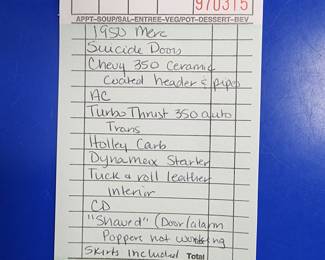 970315
APPT-SOUP/SAL-ENTREE-VEG/POT-DESSERT-BEV
1950 Merc
Suicide Doors
Chevy 350 Ceramic
Coated header & pipes
AC
Turbo Thrust 350 auto
Trans
Holley Carb
Dynamax Starter
Tuck & roll leather
Interior
CD
"Shaved" (Door/alarm
Poppers not working
Skirts Included Total